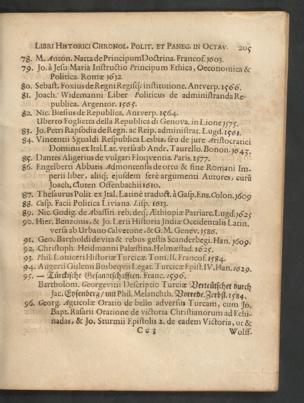 LIBRI HISTORICI CHRONOL. POLIT. ET PANEG. IN OCTAV. 205
78. M. Anton. Natta de Principum Doctrina. Francof. 1603.
79. Jo. à Jesu Maria Instructio Principum Ethica, Oeconomica &
Politica. Romæ 1632.
80. Sebast. Foxius de Regni Regisq; institutione. Antverp. 1566.
81. Joach. Widemanni Liber Politicus de administranda Re-
publica. Argentor. 1565.
82. Nic. Biesius de Republica. Antverp. 1564.
Uberto Foglietta della Republica di Genova. in Lione 1575.
83. Jo. Petri Rapsodia de Regn. ac Rep. administrat. Lugd. 1561.
84. Vincentii Sgualdi Respublica Lesbia, seu de jure Aristocratici
Dominii ex Ital. Lat. versa ab Andr. Taurello. Bonon. 1643.
85. Dantes Aligerius de vulgari Eloquentia. Paris. 1577.
86. Engelberti Abbatis Admontensis de ortu & fine Romani Im-
perii liber, aliiq; ejusdem ferè argumenti Autores, curâ
Joach. Cluten. Offenbachii 1610.
87. Thesaurus Polit. ex Jtal. Latinè traduct. à Gasp. Ens. Colon. 1609
88. Casp. Facii Politica Liviana. Lips. 1613.
89. Nic. Godig. de Abassin. reb. deq; Æthiopiæ Patriarc. Lugd. 1625
90. Hier. Benzonis, & Jo. Lærii Historia Indiæ Occidentalis Latin.
versa ab Urbano Calvetone, & G. M. Genev. 1586.
91. Geo. Bartholdi de vita & rebus gestis Scanderbegi. Han. 1609.
92. Christoph. Heidmanni Palæstina. Helmæstad. 1625.
93. Phil. Loniceri Historiæ Turcicæ Tom. II. Francof. 1584.
94. Augerii Gislenii Busbeqvii Legat. Turcicæ Epist. IV. Han. 1629.
95. — Türckische Gesandtschafften. Franc. 1596.
Bartholom. Georgevitz Descriptio Turciæ Verteütschet durch
Jac. / mit Phil. Melanchth. Vorrede. Zerbst. 1584.
96. Georg. Agricolæ Oratio de bello adversus Turcam, cum Jo.
Bapt. Rasarii Oratione de victoria Christianorum ad Echi-
nadas, & Jo. Sturmii Epistolis 2. de eadem Victoria, ut &
Cc 3 Wolff-